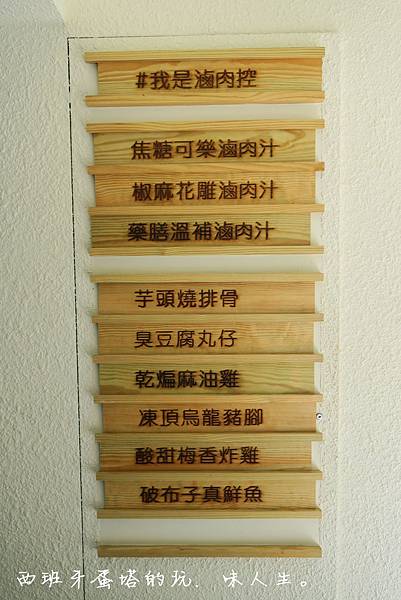 #我是滷肉控
焦糖可樂滷肉汁
椒麻花雕滷肉汁
藥膳溫補滷肉汁
芋頭燒排骨
臭豆腐丸仔
乾煸麻油雞
凍頂烏龍豬腳
酸甜梅香炸雞
破布子真鮮魚
西班牙蛋塔的玩．味人生。